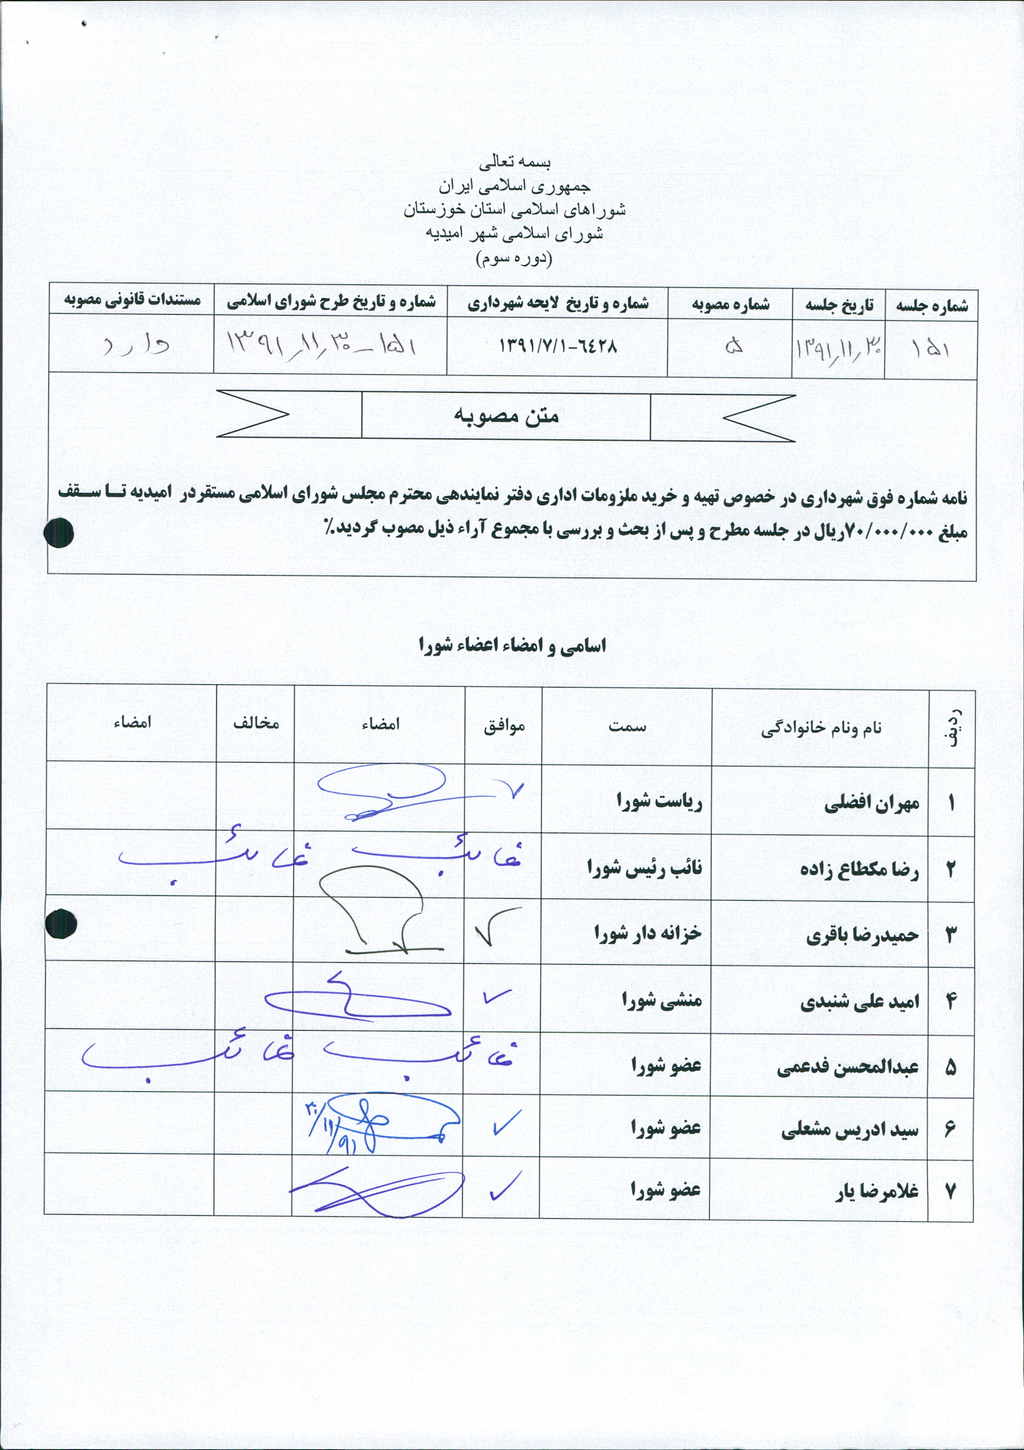 بسمه تعالی
جمهوری اسلامی ایران
شوراهای اسلامی استان خوزستان
شورای اسلامی شهر امیدیه
(دوره سوم)
شماره جلسه تاریخ جلسه شماره مصوبه شماره و تاریخ لایحه شهرداری شماره و تاریخ طرح شورای اسلامی مستندات قانونی مصوبه
۱۵۱ ۱۳۹۱/۱۱/۳۰ ۵ ۱۳۹۱/۷/۱-٦٤٢٨ ۱۵۱-۱۳۹۱/۱۱/۳۰ دارد
متن مصوبه
نامه شماره فوق شهرداری در خصوص تهیه و خرید ملزومات اداری دفتر نمایندهی محترم مجلس شورای اسلامی مستقردر امیدیه تا سقف
مبلغ ۷۰/۰۰۰/۰۰۰ریال در جلسه مطرح و پس از بحث و بررسی با مجموع آراء ذیل مصوب گردید.٪
اسامی و امضاء اعضاء شورا
ردیف نام ونام خانوادگی سمت موافق امضاء مخالف امضاء
۱ مهران افضلی ریاست شورا ✓
۲ رضا مکطاع زاده نائب رئیس شورا غائب غائب
۳ حمیدرضا باقری خزانه دار شورا ✓
۴ امید علی شنبدی منشی شورا ✓
۵ عبدالمحسن فدعمی عضو شورا غائب غائب
۶ سید ادریس مشعلی عضو شورا ✓ ۹۱/۱۱/۳۰
۷ غلامرضا یار عضو شورا ✓